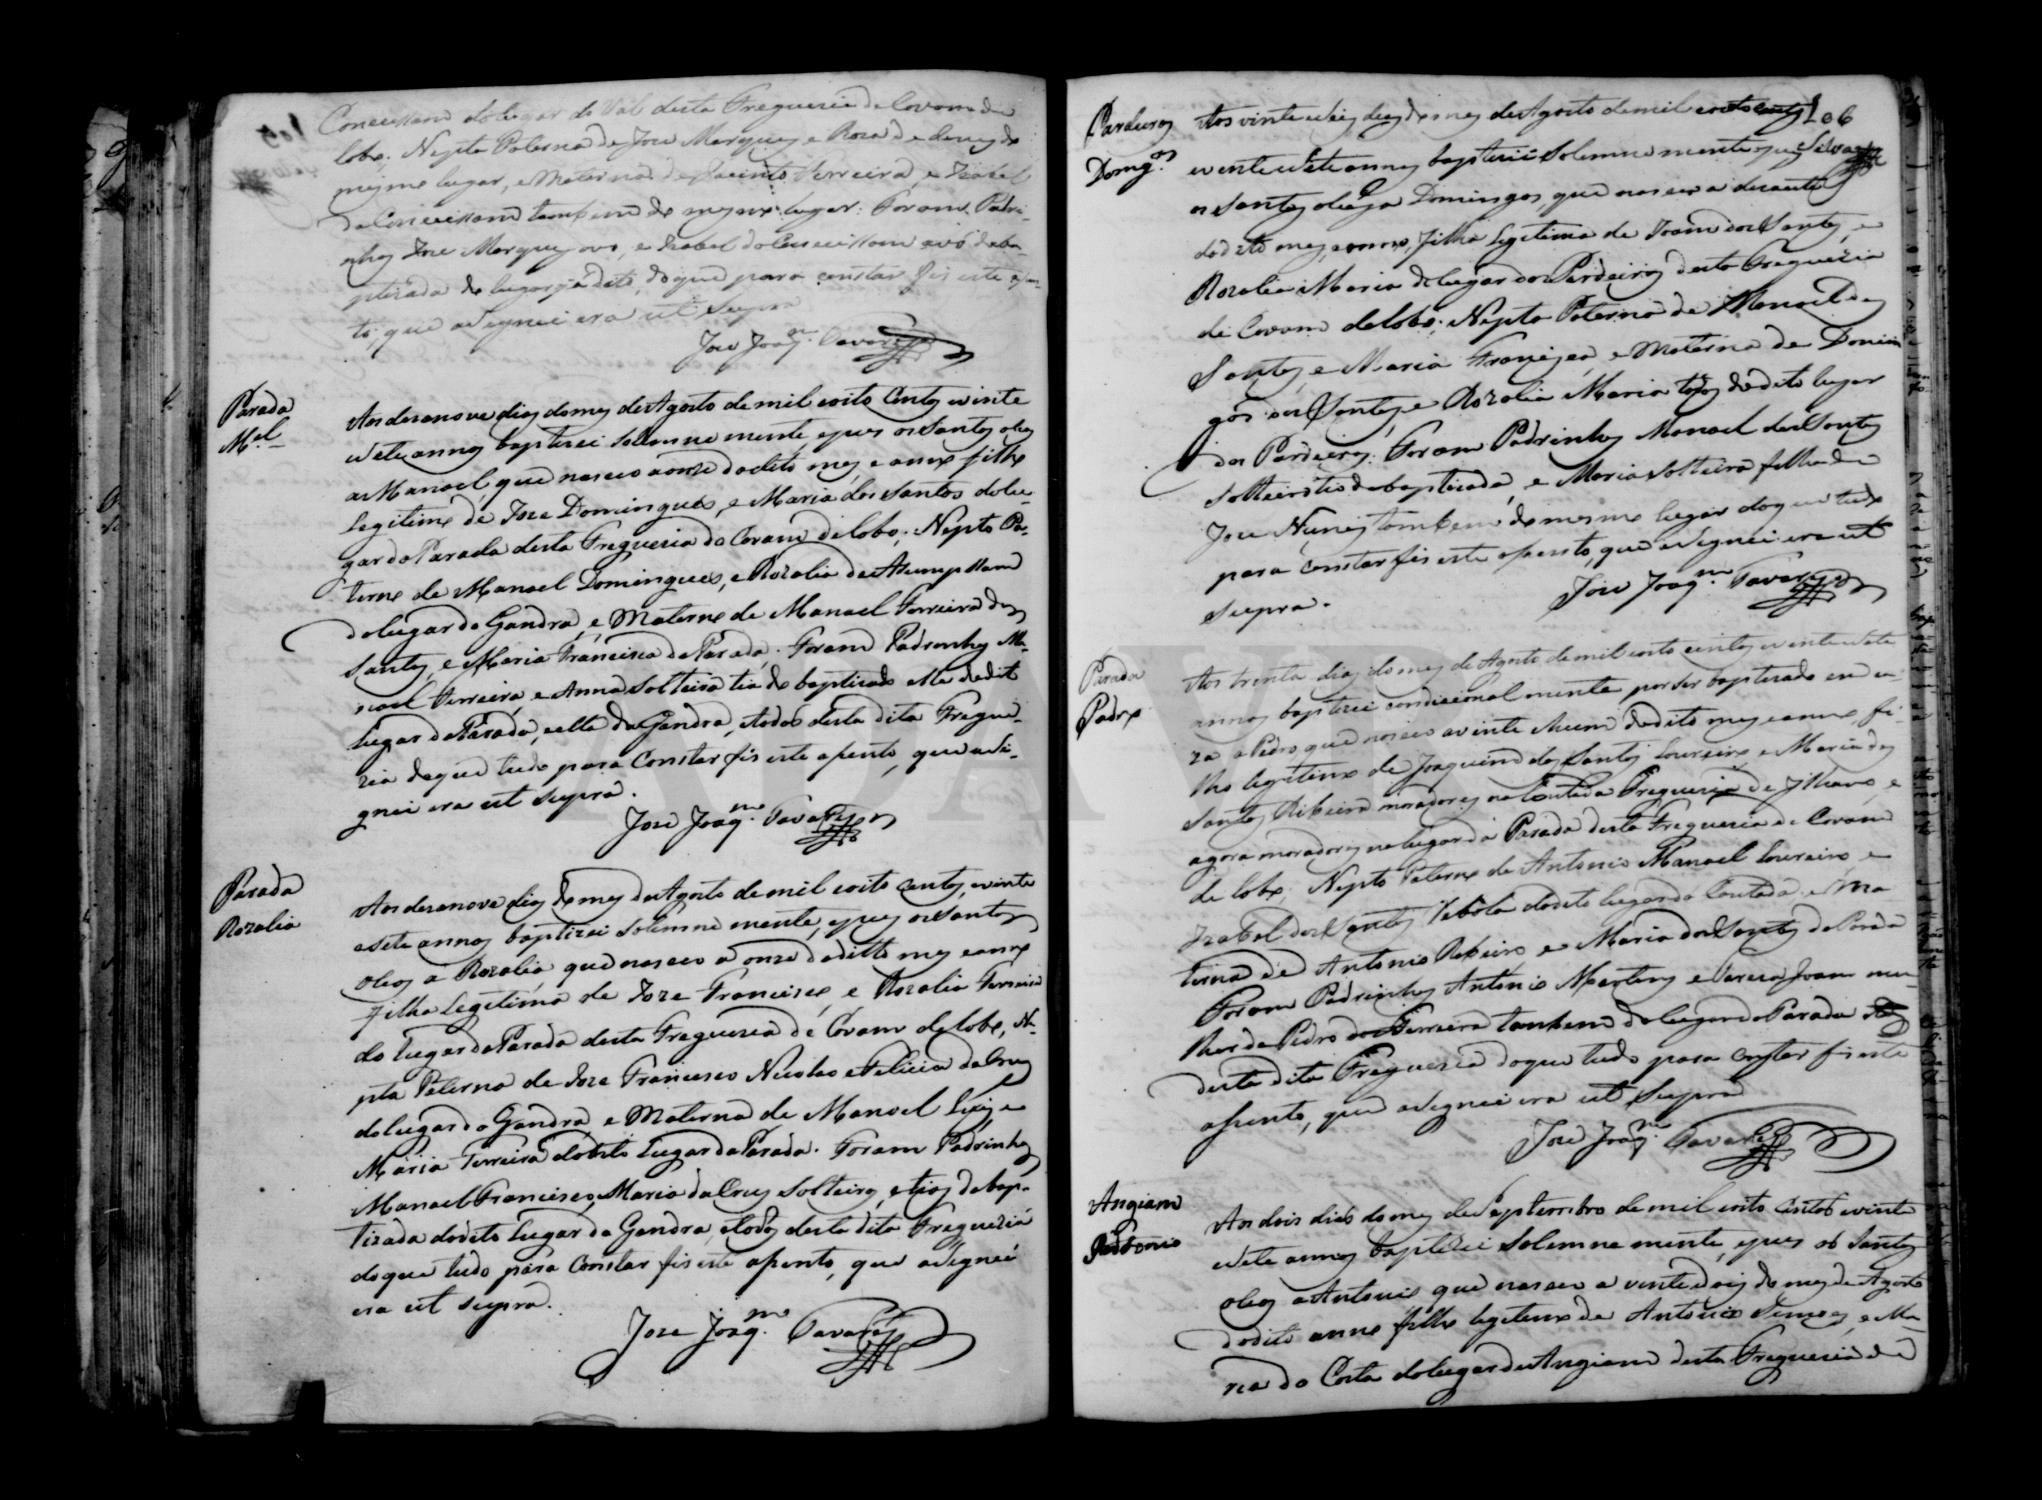 Conceissam do lugar do Val desta Freguesia de Covam de
lobo; Nepta Paterna de Joze Marques e Roza de do
mesmo lugar, e Materna de Jacinto Ferreira, e Izabel
da Conceissam tambem do mesmo lugar: Foram Padri-
nhos Joze Marques avo, e Izabel da Conceissam avó da ba-
ptizada do lugar já dito, do que para constar fis este asen-
to, que asignei era ut Supra
Joze Joaq.m Tavares
Parada
M.el
Aos dezanove dias do mes de Agosto de mil oito Centos e vinte
e sete annos baptizei solemne mente, e pus os Santos oleos
a Manoel, que nasceo a onze do dito mes, e anno filho
Legitimo de Joze Domingues, e Maria dos Santos do lu-
gar da Parada desta Freguesia de Covam de lobo; Nepto Pa-
terno de Manoel Domingues, e Rozalia da Asumpssam
do lugar da Gandra, e Materno de Manoel Ferreira dos
Santos, e Maria Francisca da Parada. Foram Padrinhos Ma-
noel Ferreira, e Anna Solteira tia do baptizado elle do dito
lugar da Parada, e ella da Gandra, e todos desta dita Fregue-
zia do que tudo para Constar fis este asento, que asi-
gnei era ut supra.
Joze Joaq.m Tavares
Parada
Rozalia
Aos dezanove dias do mes de Agosto de mil oito centos, e vinte
e sete annos baptizei solemne mente, e pus os Santos
oleos a Rozalia, que nasceo a onze do ditto mes e anno
filha Legitima de Joze Francisco, e Rozalia Ferreira
do lugar da Parada desta Freguesia de Covam de lobo, Ne-
pta Paterna de Joze Francisco Nicolao e Felicia da Cruz
do lugar da Gandra, e Materna de Manoel Luis, e
Maria Ferreira do dito lugar da Parada. Foram Padrinhos
Manoel Francisco, Maria da Cruz Solteira, e tios da bap-
tizada do dito lugar da Gandra, e todos desta dita Freguezia
do que tudo para Constar fis este asento, que asignei
era ut supra.
Joze Joaq.m Tavares
106
Pardeiros
Domg.os
Aos vinte e seis dias do mes de Agosto de mil oito centos
e vinte e sete annos baptizei Solemne mente e pus
os Santos oleos a Domingos, que nasceo a vinte
do dito mes, e anno, filho Legitimo de Joam dos Santos, e
Rozalia Maria do lugar dos Pardeiros desta Freguezia
de Covam de lobo; Nepto Paterno de Manoel dos
Santos, e Maria Francisca, e Materno de Domin
gos dos Santos, e Rozalia Maria todos do dito lugar
dos Pardeiros: Foram Padrinhos Manoel dos Santos
Solteiro tio do baptizado, e Maria Solteira filha de
Joze Nunes tambem do mesmo lugar do que tudo
para constar fis este asento, que asignei era ut
supra.
Joze Joaq.m Tavares
Parada
Pedro
Aos trinta dias do mes de Agosto de mil oito centos e vinte e sete
annos baptizei condicional mente por ser baptizado em ca-
za a Pedro que nasceo a vinte e hum do dito mes e anno, fi-
lho legitimo de Joaquim dos Santos Loureiro e Maria dos
Santos Ribeira moradores na Coutada Freguezia de Ilhavo, e
agora moradores no lugar da Parada desta Freguezia de Covam
de lobo; Nepto Paterno de Antonio Manoel Loureiro, e
Izabel dos Santos do dito lugar da Coutada, e Ma
terno de Antonio Ribeiro e Maria dos Santos da Parada
Foram Padrinhos Antonio Martins e Joam mu-
lher de Pedro dos Ferreira tambem do lugar da Parada
desta dita Freguezia do que tudo para constar fis este
asento, que asignei era ut Supra
Joze Joaq.m Tavares
Angiam
Antonio
Aos dois dias do mes de Septembro de mil oito Centos e vinte
e sete annos baptizei Solemne mente, e pus os Santos
oleos a Antonio que nasceo a vinte e dois do mes de Agosto
do dito anno filho legitimo de Antonio Simoes, e Ma
ria da Costa do lugar de Angiam desta Freguezia de